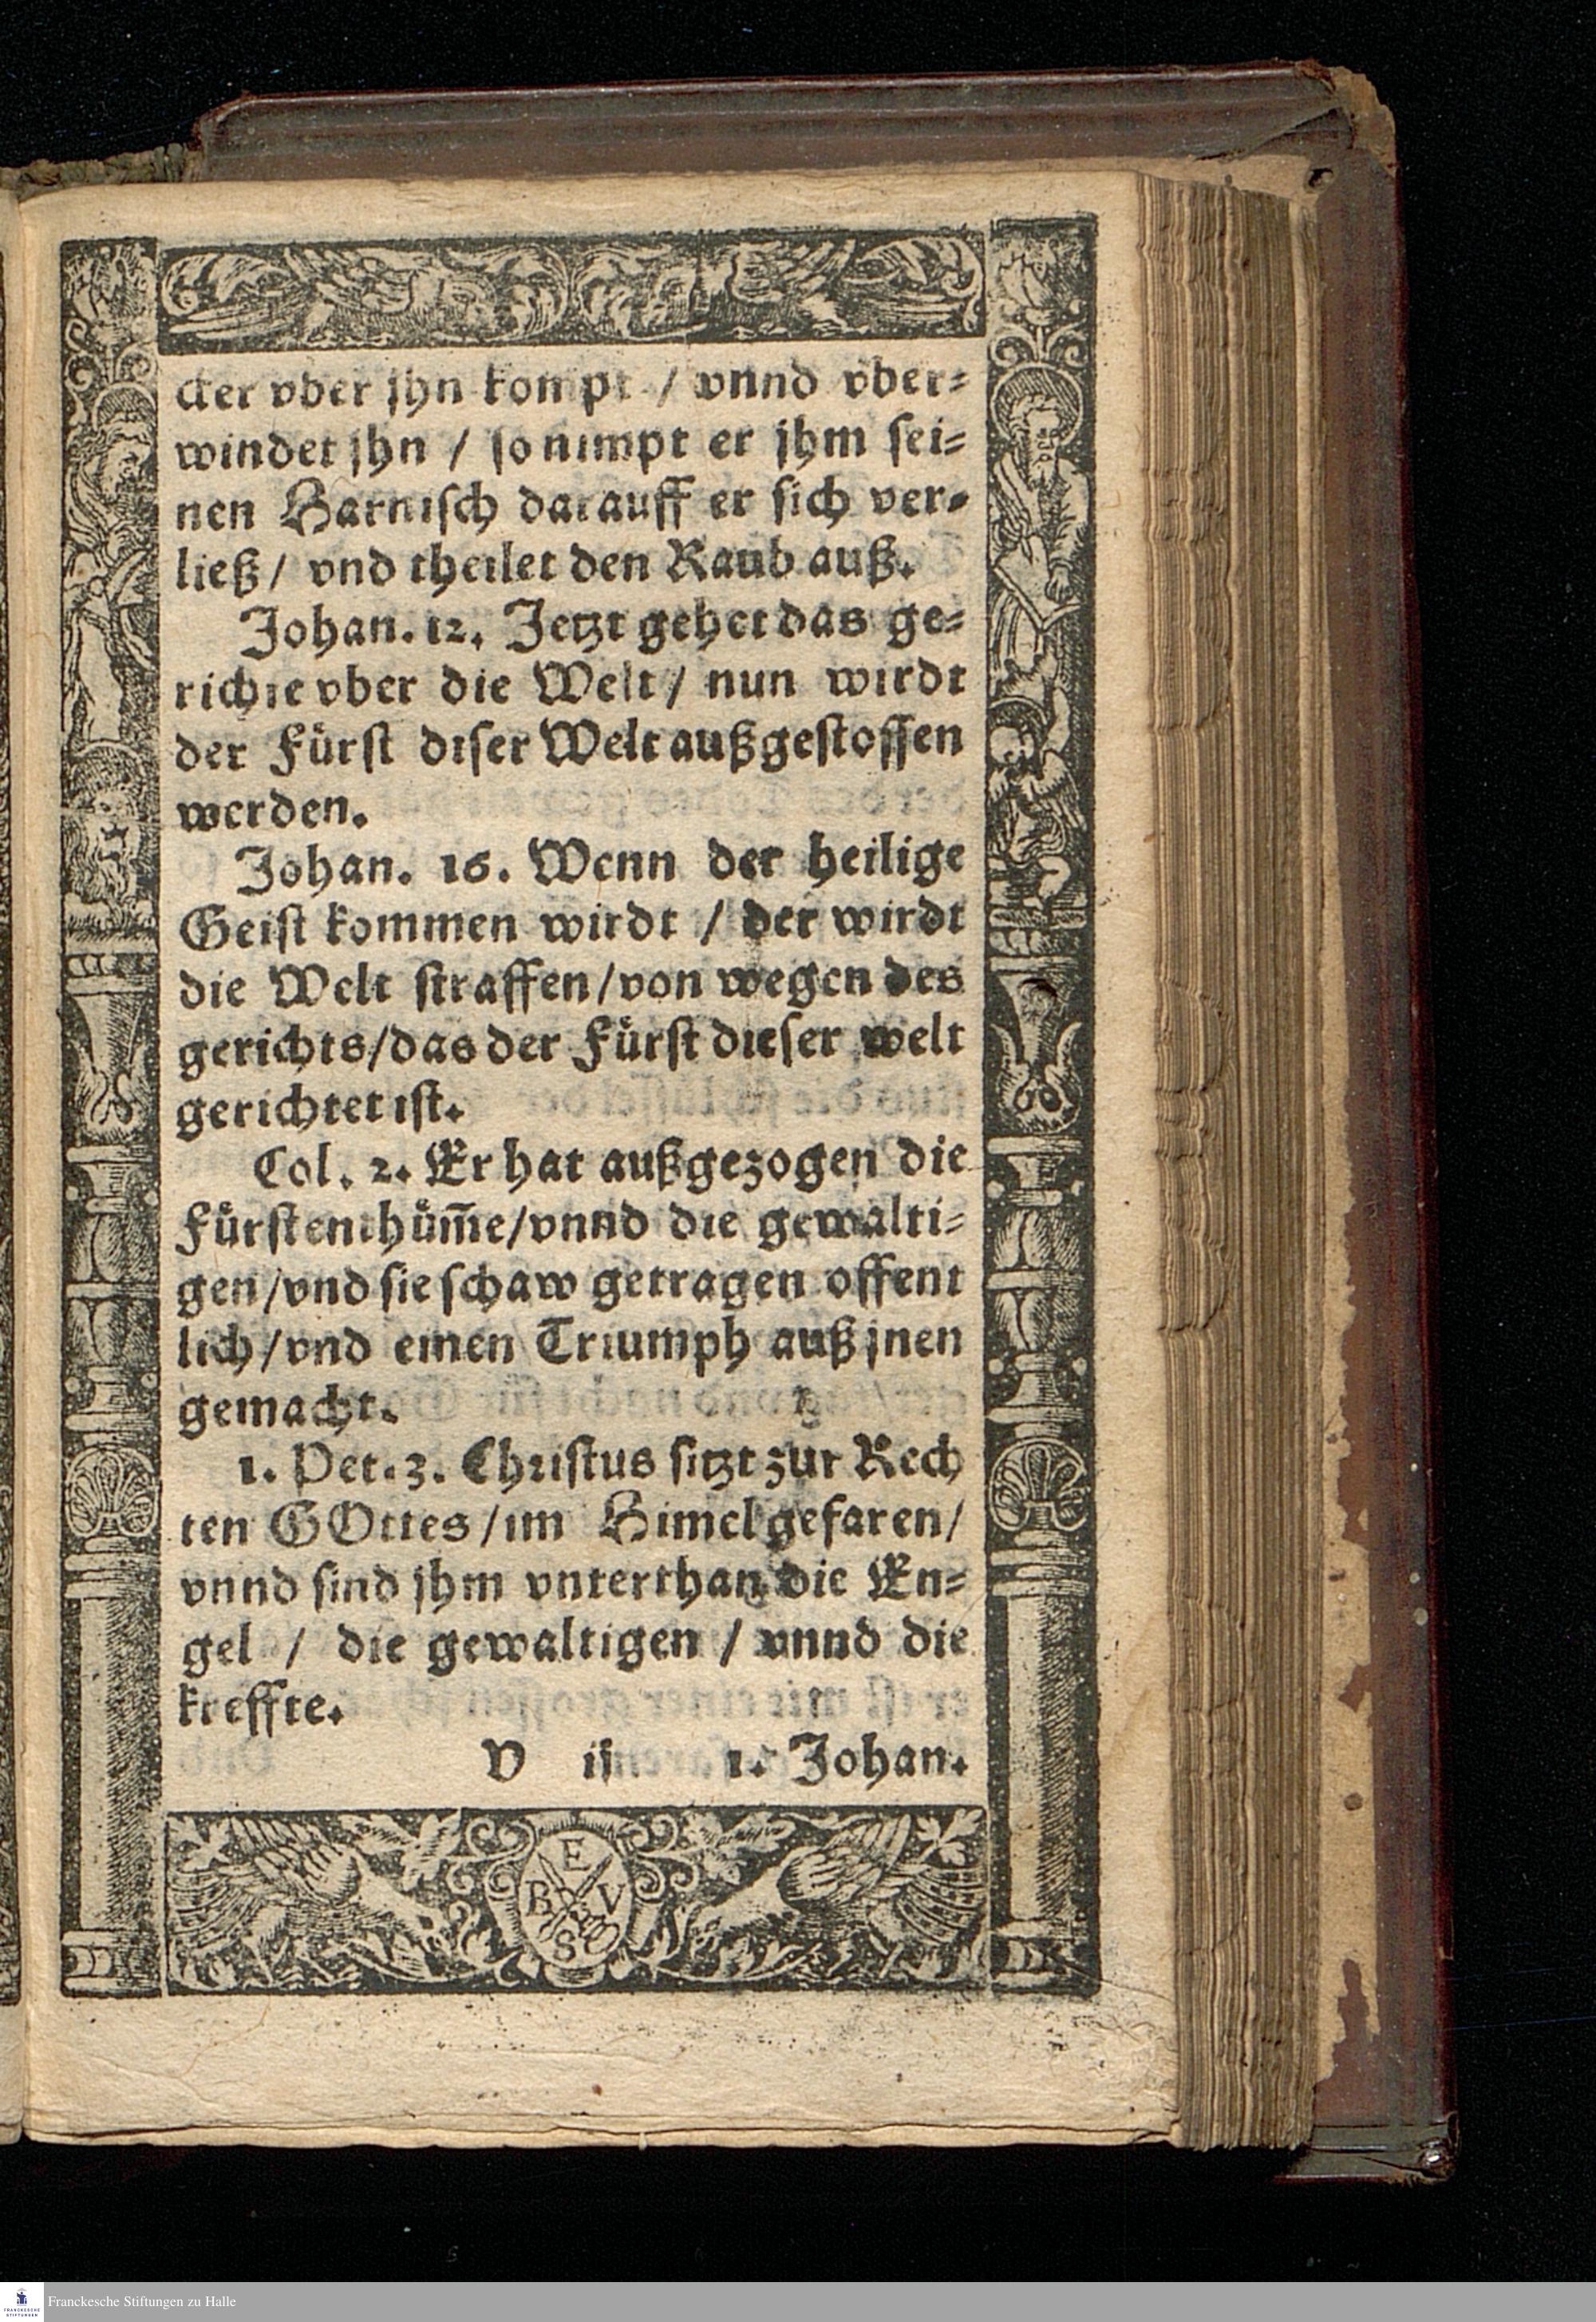 cker vber jhn kompt / vnnd vber-
windet jhn / so nimpt er jhm sei-
nen Harnisch darauff er sich ver-
ließ / vnd theilet den Raub auß.
Johan. 12. Jetzt gehet das ge-
richte vber die Welt / nun wirdt
der Fürst diser Welt außgestossen
werden.
Johan. 16. Wenn der heilige
Geist kommen wirdt / der wirdt
die Welt straffen / von wegen des
gerichts / das der Fürst dieser welt
gerichtet ist.
Col. 2. Er hat außgezogen die
Fürstenthüm̃e / vnnd die gewalti-
gen / vnd sie schaw getragen offent
lich / vnd einen Triumph auß jnen
gemacht.
1. Pet. 3. Christus sitzt zur Rech
ten GOttes / im Himel gefaren /
vnnd sind jhm vnterthan die En-
gel / die gewaltigen / vnnd die
kreffte.
V ij 1. Johan.
E
B V
S
Franckesche Stiftungen zu Halle
FRANCKESCHE
STIFTUNGEN